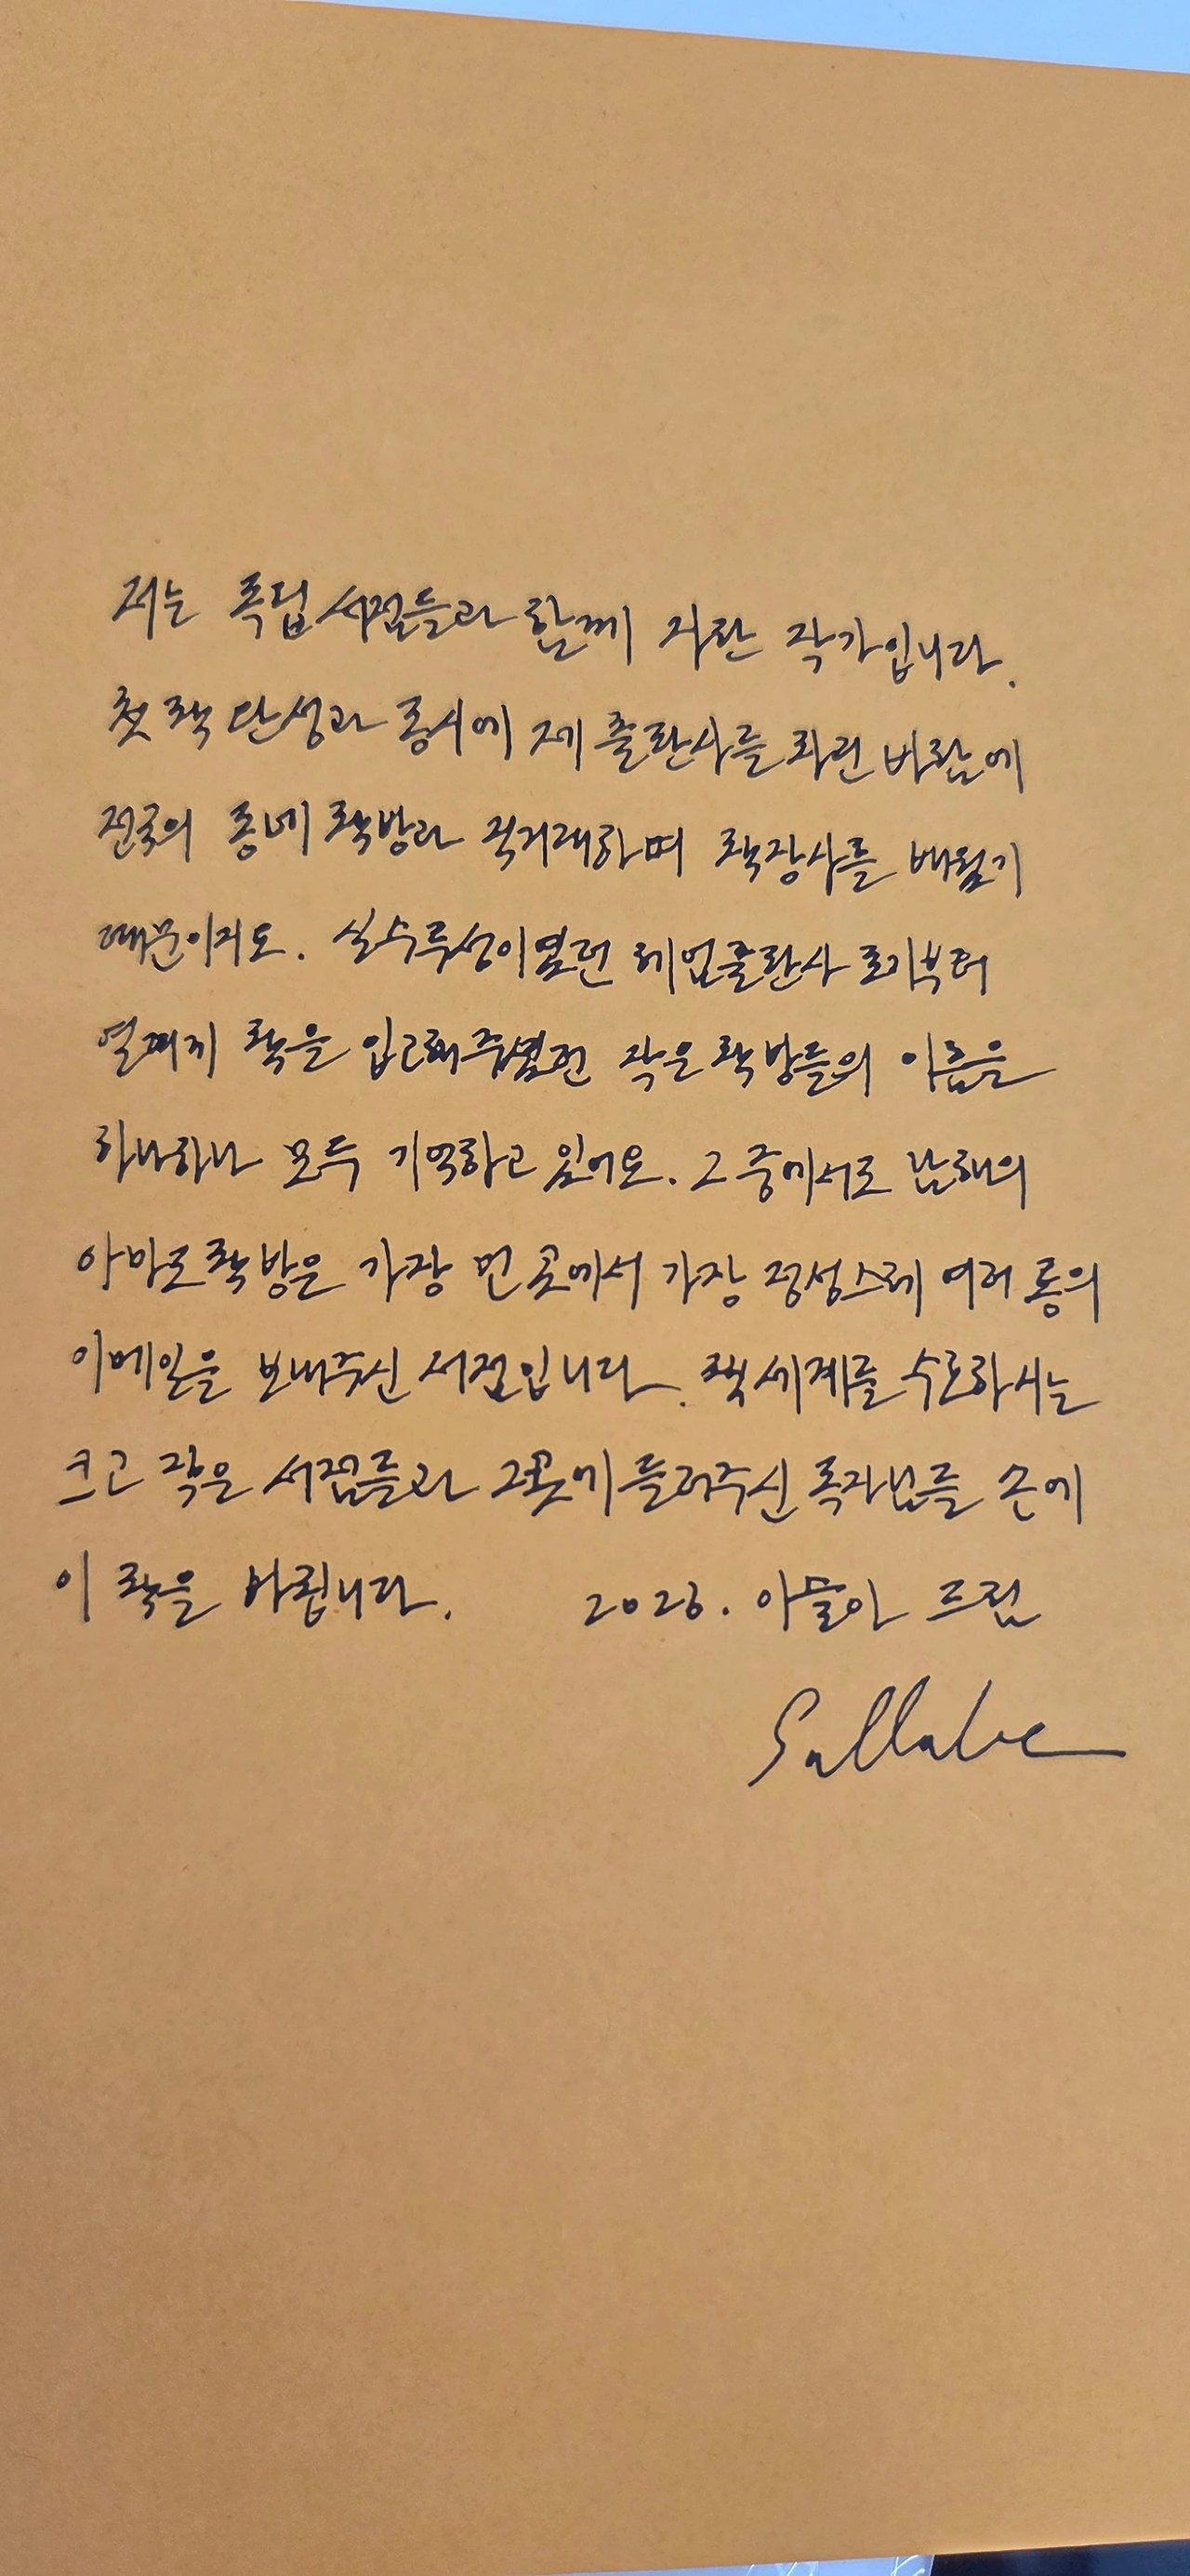 저는 독립서점들과 함께 자란 작가입니다.
첫 책 탄생과 동시에 제 출판사를 차린 바람에
전국의 동네 책방과 직거래하며 책장사를 배웠기
때문이지요. 실수투성이였던 1인출판사 초기부터
열까지 책을 입고해주셨던 작은 책방들의 이름을
하나하나 모두 기억하고 있어요. 그 중에서도 남해의
아마도책방은 가장 먼 곳에서 가장 정성스레 여러 통의
이메일을 보내주신 서점입니다. 책 세계를 수호하시는
크고 작은 서점들과 그곳에 들러주신 독자님들 손에
이 책을 바칩니다. 2026. 이슬아 드림